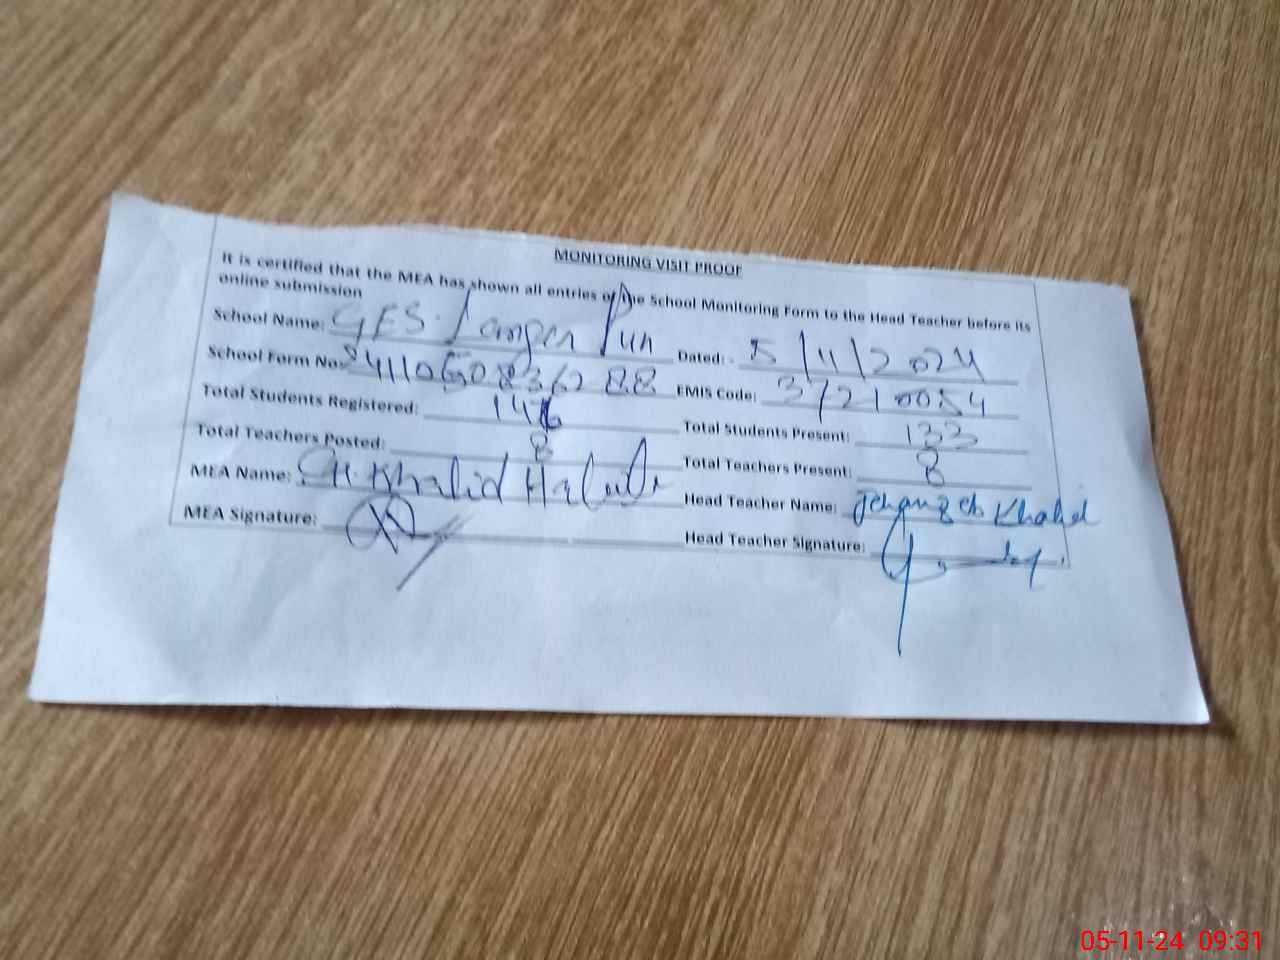 MONITORING VISIT PROOF
It is certified that the MEA has shown all entries of the School Monitoring Form to the Head Teacher before its
online submission
School Name: GES. Langer Pur Dated: 5/11/2024
School Form No: EMIS Code: 37210054
Total Students Registered: 146 Total Students Present: 133
Total Teachers Posted: 8 Total Teachers Present: 8
MEA Name: CH. Khalid Head Teacher Name: Khalid
MEA Signature: Head Teacher Signature:
05-11-24 09:31